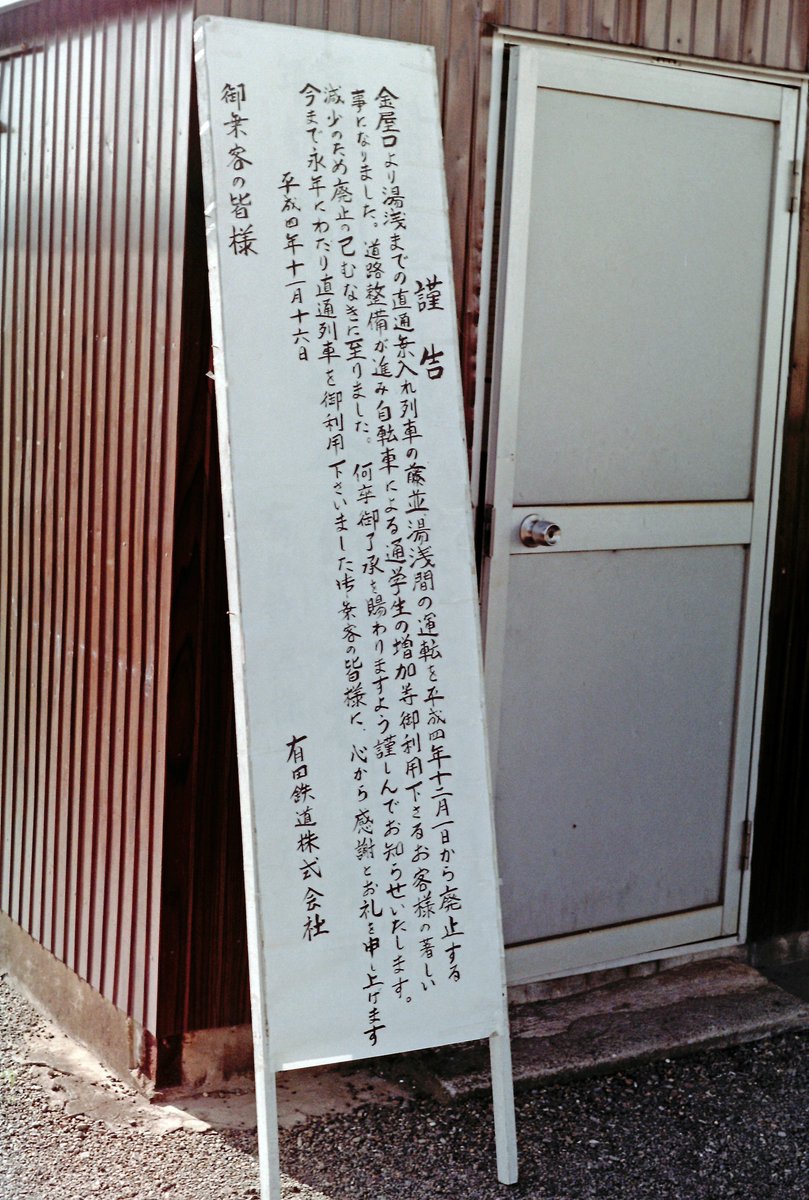 謹告
金屋口より湯浅までの直通乗入れ列車の藤並湯浅間の運転を平成四年十二月一日から廃止する
事になりました。道路整備が進み自転車による通学生の増加等御利用下さるお客様の著しい
減少のため廃止の已むなきに至りました。何卒御了承を賜わりますよう謹しんでお知らせいたします。
今まで永年にわたり直通列車を御利用下さいました御乗客の皆様に、心から感謝とお礼を申し上げます
平成四年十一月十六日
有田鉄道株式会社
御乗客の皆様